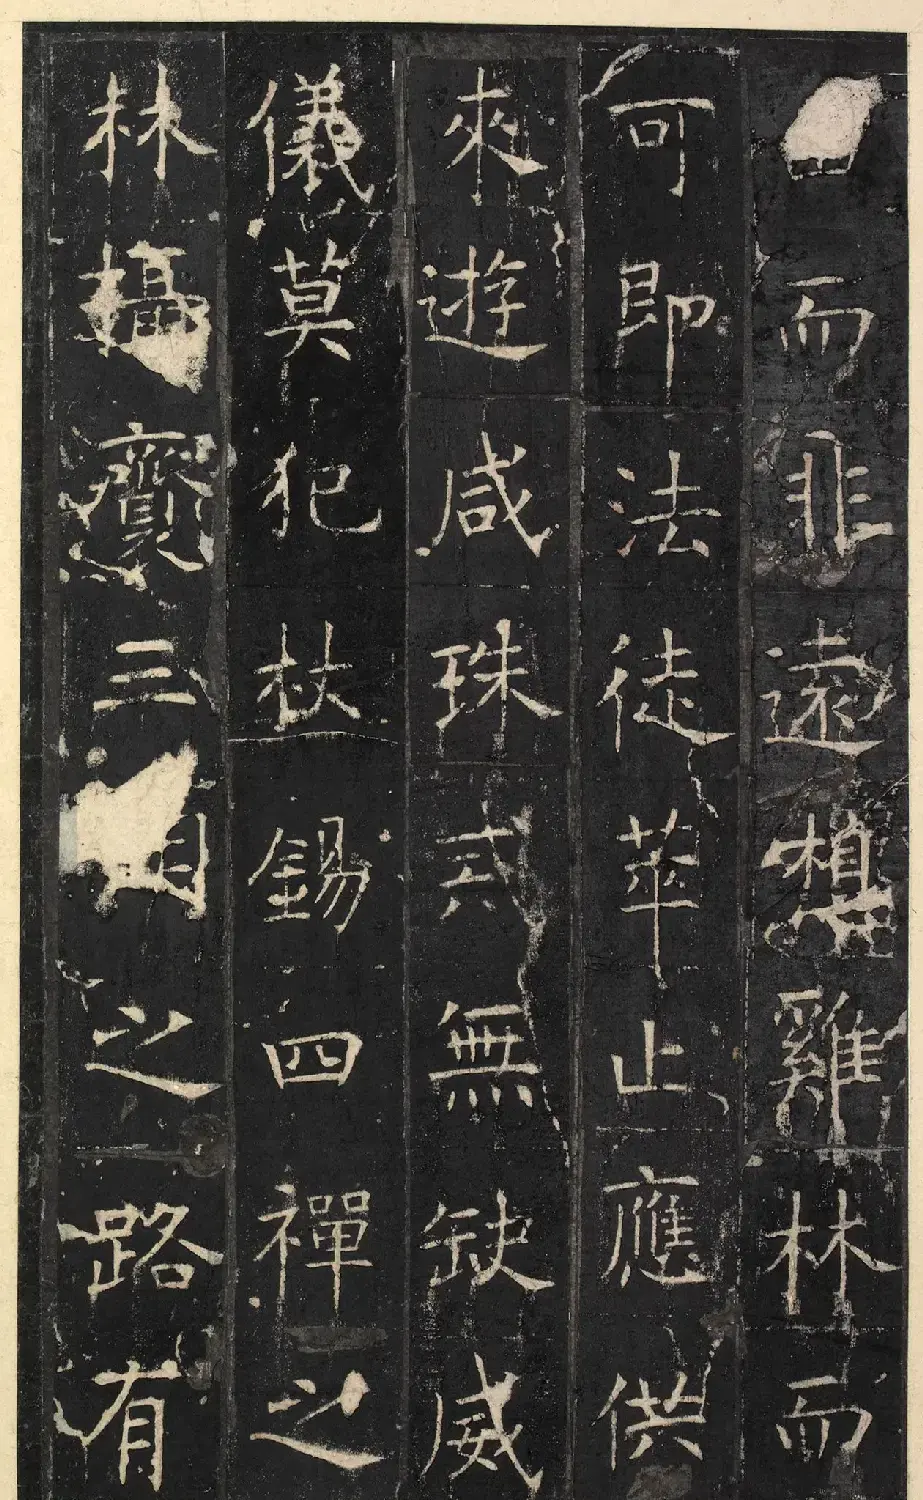 而非遠想雞林而
可即法徒萃止應供
來遊咸珠無缺威
儀莫犯杖錫四禪之
林攝三之路有